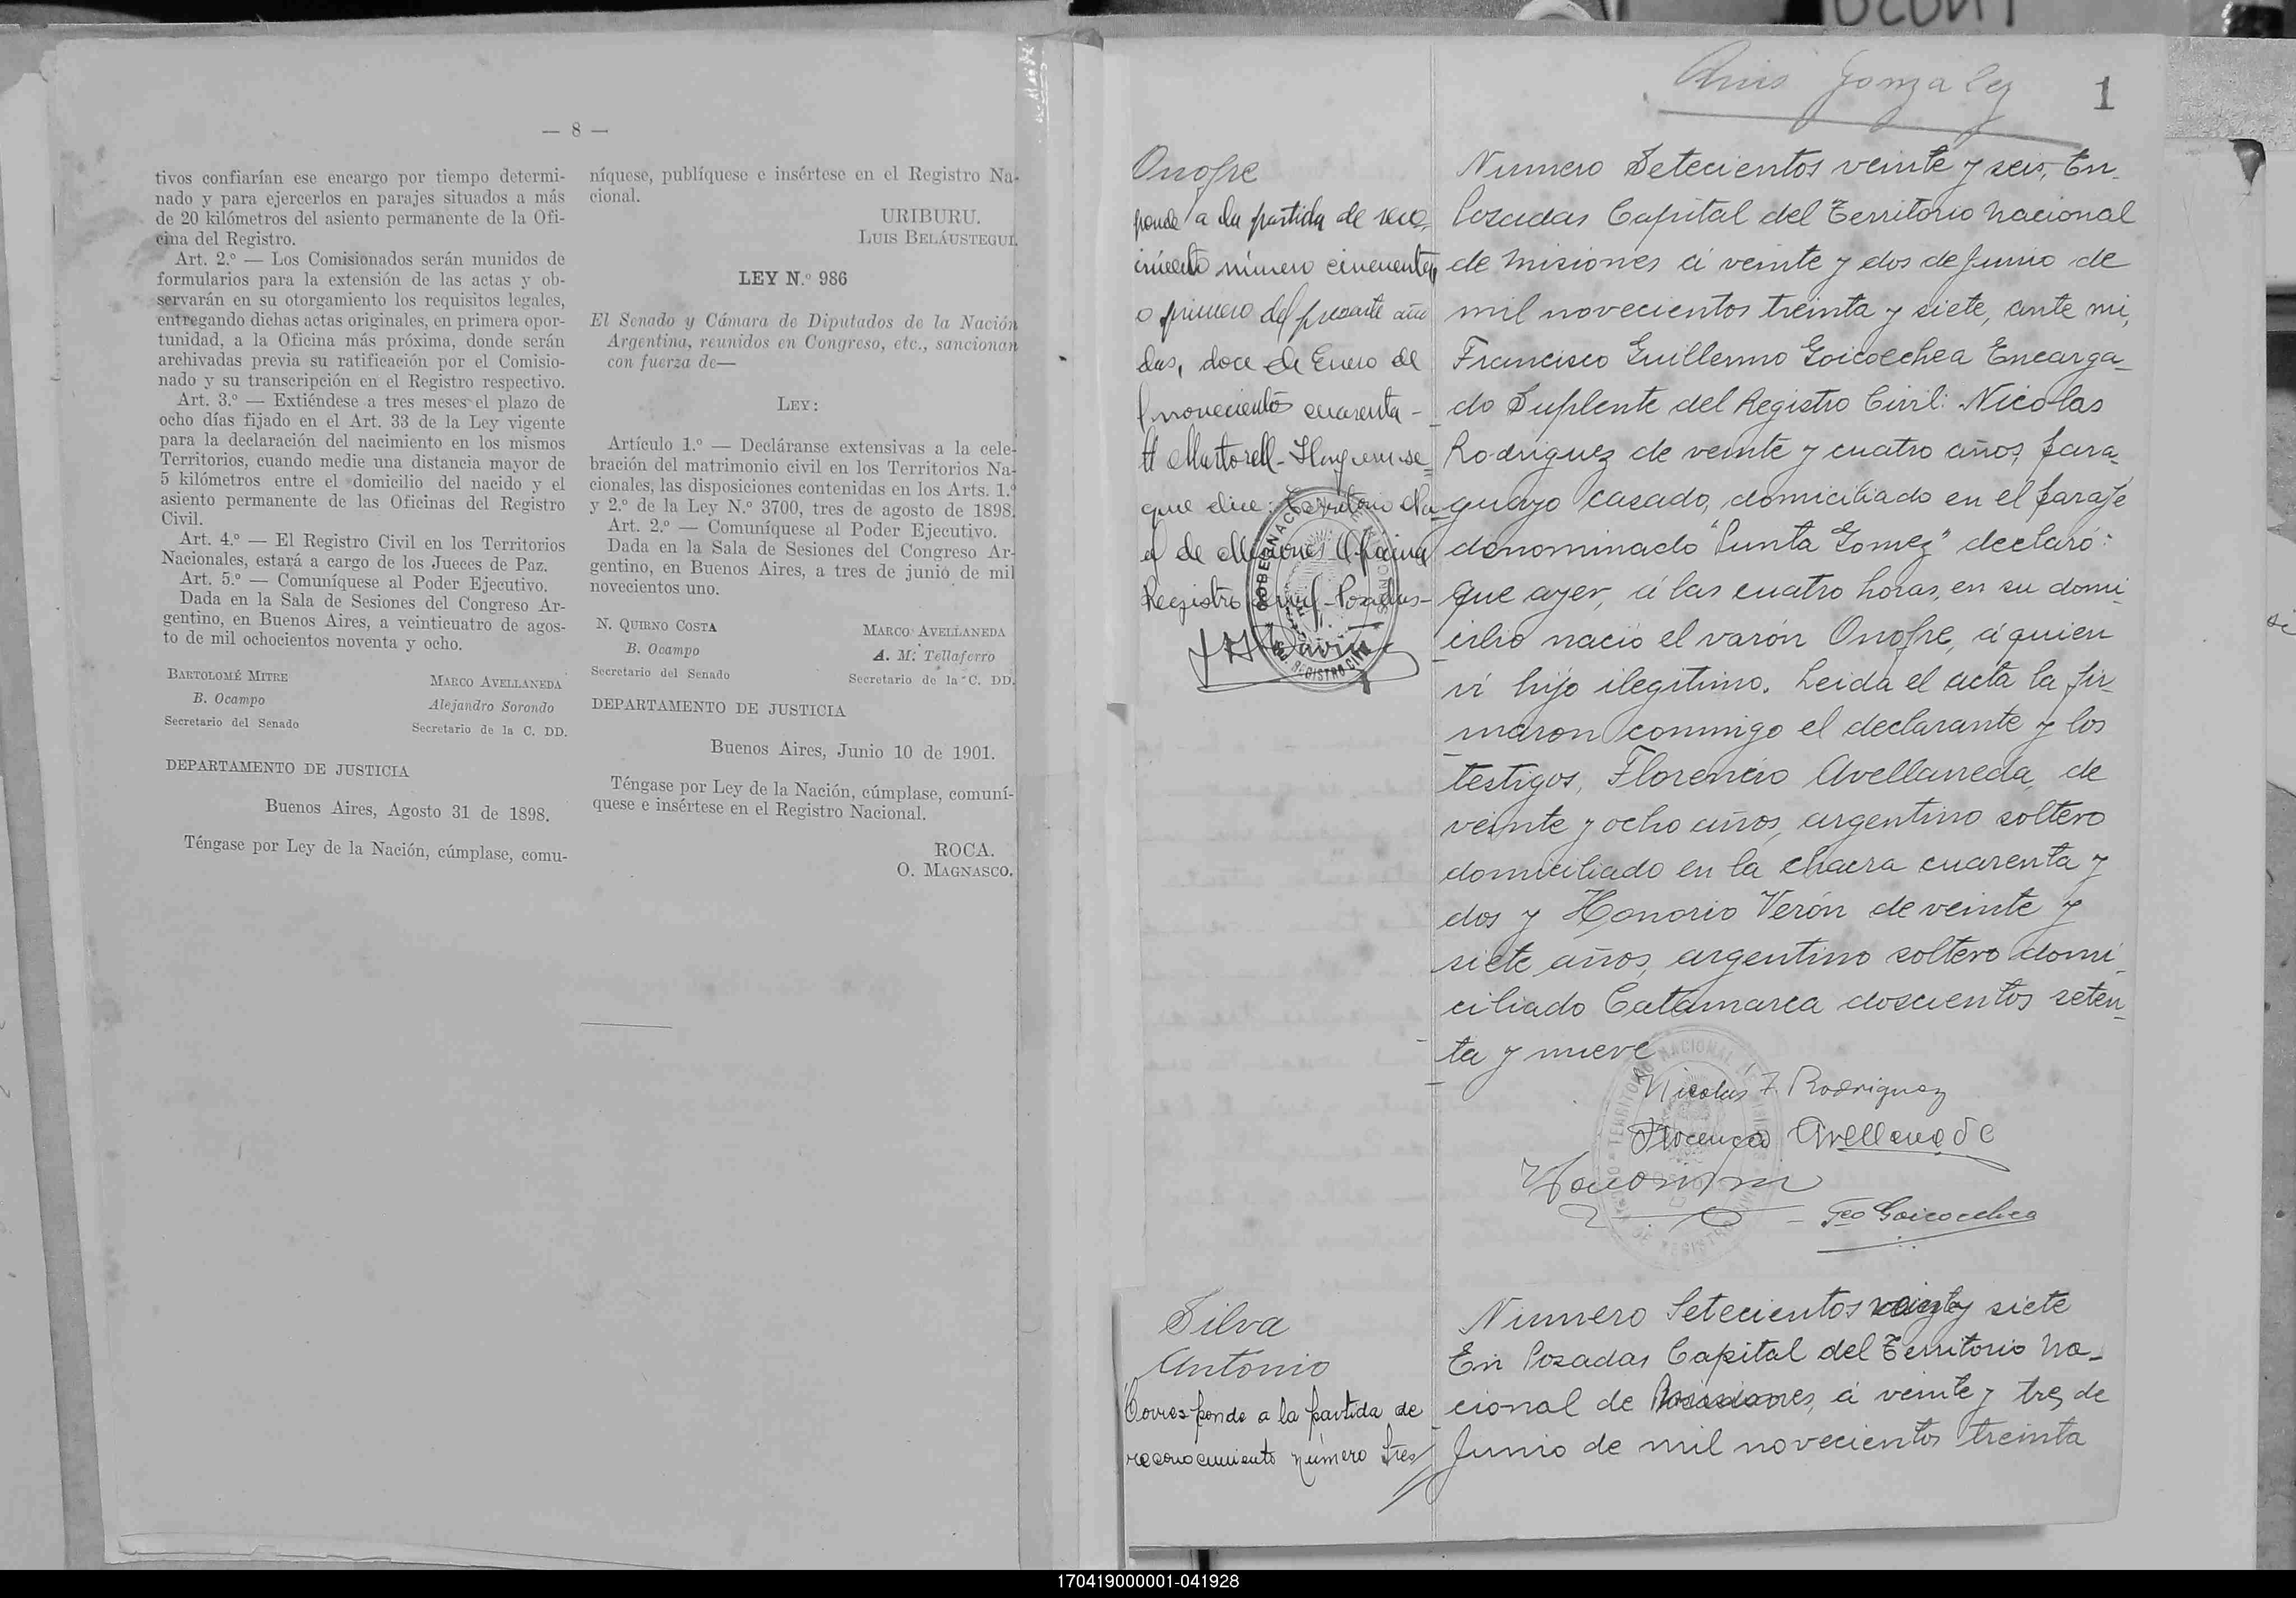 — 8 —
tivos confiarían ese encargo por tiempo determi-
nado y para ejercerlos en parajes situados a más
de 20 kilómetros del asiento permanente de la Ofi-
cina del Registro.
Art. 2.º — Los Comisionados serán munidos de
formularios para la extensión de las actas y ob-
servarán en su otorgamiento los requisitos legales,
entregando dichas actas originales, en primera opor-
tunidad, a la Oficina más próxima, donde serán
archivadas previa su ratificación por el Comisio-
nado y su transcripción en el Registro respectivo.
Art. 3.º — Extiéndese a tres meses el plazo de
ocho días fijado en el Art. 33 de la Ley vigente
para la declaración del nacimiento en los mismos
Territorios, cuando medie una distancia mayor de
5 kilómetros entre el domicilio del nacido y el
asiento permanente de las Oficinas del Registro
Civil.
Art. 4.º — El Registro Civil en los Territorios
Nacionales, estará a cargo de los Jueces de Paz.
Art. 5.º — Comuníquese al Poder Ejecutivo.
Dada en la Sala de Sesiones del Congreso Ar-
gentino, en Buenos Aires, a veinticuatro de agos-
to de mil ochocientos noventa y ocho.
BARTOLOMÉ MITRE
B. Ocampo
Secretario del Senado
MARCO AVELLANEDA
Alejandro Sorondo
Secretario de la C. DD.
DEPARTAMENTO DE JUSTICIA
Buenos Aires, Agosto 31 de 1898.
Téngase por Ley de la Nación, cúmplase, comu-
níquese, publíquese e insértese en el Registro Na-
cional.
URIBURU.
LUIS BELÁUSTEGUI.
LEY N.º 986
El Senado y Cámara de Diputados de la Nación
Argentina, reunidos en Congreso, etc., sancionan
con fuerza de—
LEY:
Artículo 1.º — Decláranse extensivas a la cele-
bración del matrimonio civil en los Territorios Na-
cionales, las disposiciones contenidas en los Arts. 1.º
y 2.º de la Ley N.º 3700, tres de agosto de 1898.
Art. 2.º — Comuníquese al Poder Ejecutivo.
Dada en la Sala de Sesiones del Congreso Ar-
gentino, en Buenos Aires, a tres de junio de mil
novecientos uno.
N. QUIRNO COSTA
B. Ocampo
Secretario del Senado
MARCO AVELLANEDA
A. M. Tellaferro
Secretario de la C. DD.
DEPARTAMENTO DE JUSTICIA
Buenos Aires, Junio 10 de 1901.
Téngase por Ley de la Nación, cúmplase, comuní-
quese e insértese en el Registro Nacional.
ROCA.
O. MAGNASCO.
Gonzalez
1
Onofre
ponde a la partida de reco
cimiento número cincuenta
o primero del presente año
das, doce de Enero de
novecientos cuarenta -
Martorell -
que dice: Territorio Na
al de Misiones Oficina
Registro Civil - Posadas -
GOBERNACION
REGISTRO CIVIL
Numero Setecientos veinte y seis, En
Posadas Capital del Territorio Nacional
de Misiones á veinte y dos de Junio de
mil novecientos treinta y siete, ante mi,
Francisco Guillermo Goicoechea Encarga-
do Suplente del Registro Civil: Nicolas
Rodriguez de veinte y cuatro años, para-
guayo casado, domiciliado en el paraje
denominado "Punta Gomez" declaró:
que ayer, á las cuatro horas, en su domi-
cilio nació el varón Onofre, á quien
ví hijo ilegitimo. Leida el acta la fir-
maron conmigo el declarante y los
testigos, Florencio Avellaneda, de
veinte y ocho años, argentino soltero
domiciliado en la chacra cuarenta y
dos y Honorio Verón de veinte y
siete años, argentino soltero domi-
ciliado Catamarca doscientos seten-
ta y nueve
TERRITORIO NACIONAL DE MISIONES
Nicolas F. Rodriguez
Avellaneda
Fco Goicoechea
Silva
Antonio
Corresponde a la partida de
reconocimiento número tres
Numero Setecientos veinte y siete
En Posadas Capital del Territorio Na-
cional de Misiones, á veinte y tres de
Junio de mil novecientos treinta
170419000001-041928